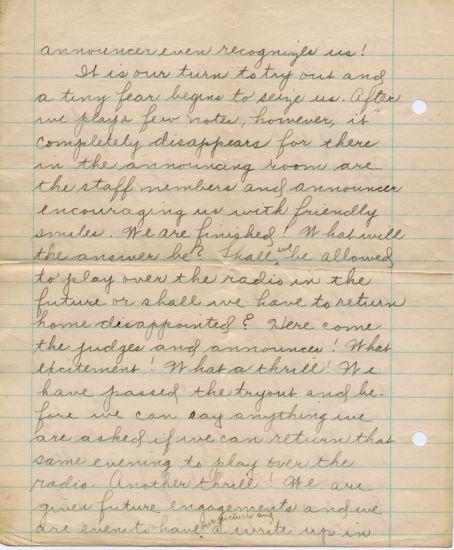 announcer even recognizes us!
It is our turn to try out and
a tiny fear begins to seize us. After
we play a few notes, however, it
completely disappears for there
in the announcing room are
the staff members and announcer
encouraging us with friendly
smiles. We are finished! What will
the answer be? Shall we be allowed
to play over the radio in the
future or shall we have to return
home disappointed? Here come
the judges and announcer! What
excitement! What a thrill! We
have passed the tryout and be-
fore we can say anything we
are asked if we can return that
same evening to play over the
radio. Another thrill! We are
given future engagements and we
are even to have our picture and a write up in